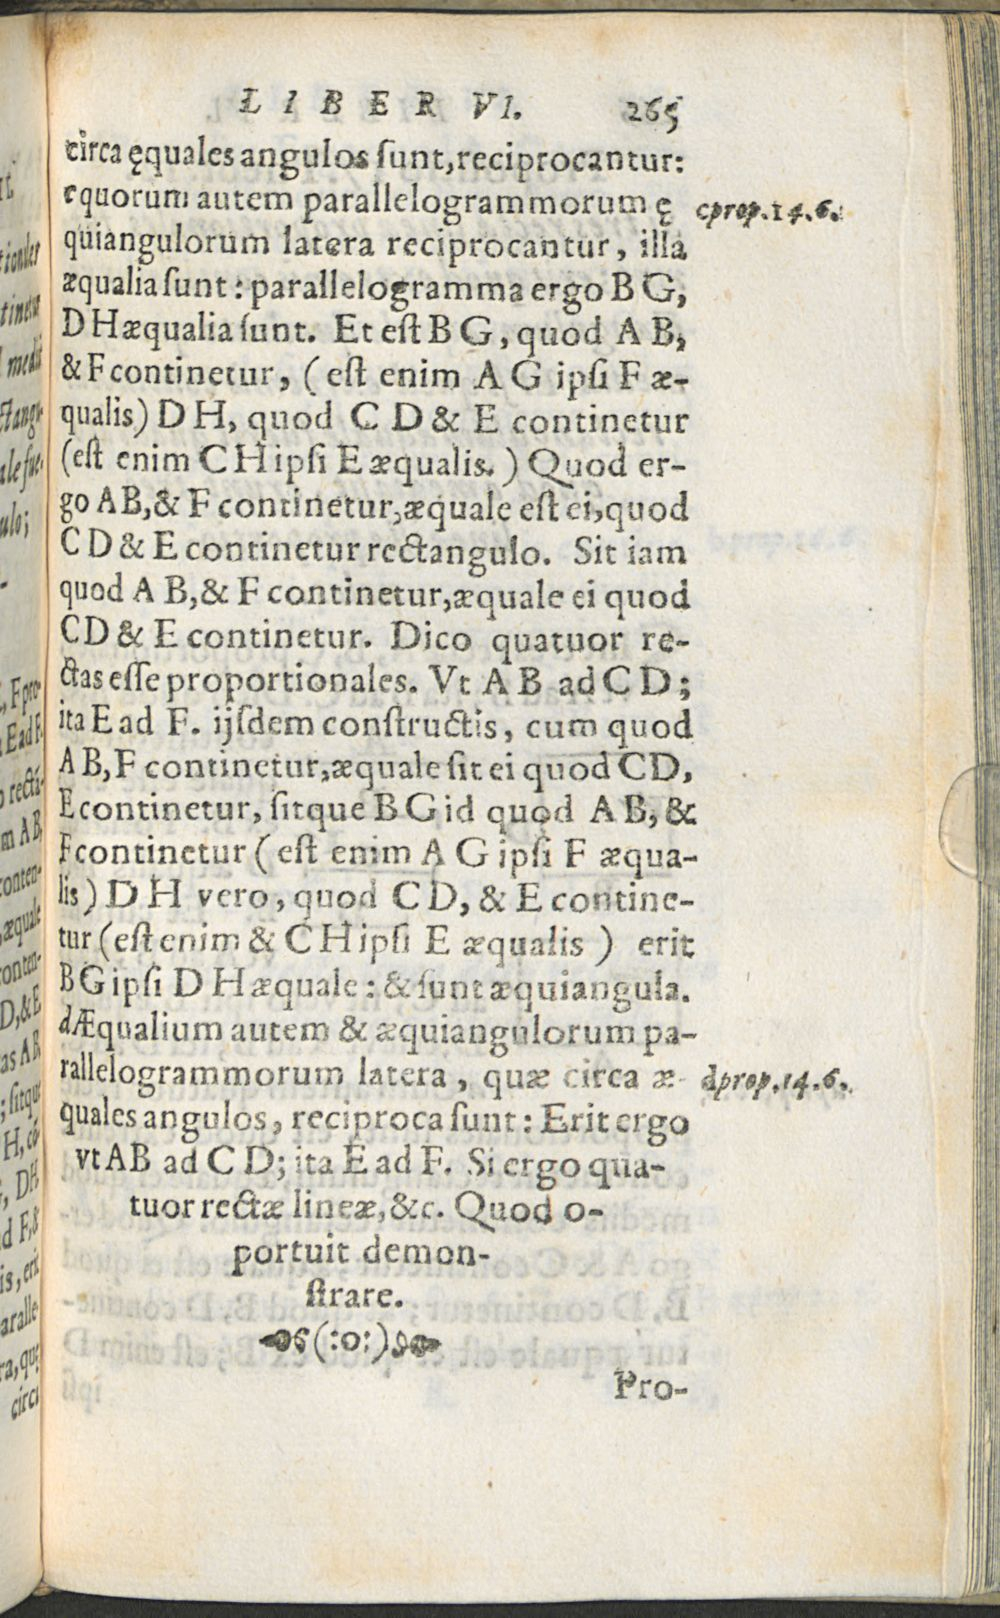 LIBER VI. 265
circa ęquales angulos sunt, reciprocantur:
c quorum autem parallelogrammorum ę
cprop.14.6.
quiangulorum latera reciprocantur, illa
æqualia sunt: parallelogramma ergo B G,
D H æqualia sunt. Et est B G, quod A B,
& F continetur, (est enim A G ipsi F æ-
qualis) D H, quod C D & E continetur
(est enim C H ipsi E æqualis.) Quod er-
go AB,& F continetur,æquale est ei,quod
C D & E continetur rectangulo. Sit iam
quod A B,& F continetur,æquale ei quod
CD & E continetur. Dico quatuor re-
ctas esse proportionales. Vt A B ad C D;
ita E ad F. ijsdem constructis, cum quod
A B,F continetur,æquale sit ei quod CD,
E continetur, sitque B G id quod A B, &
F continetur (est enim A G ipsi F æqua-
lis) D H vero, quod C D, & E contine-
tur (est enim & C H ipsi E æqualis) erit
B G ipsi D H æquale: & sunt æquiangula.
dÆqualium autem & æquiangulorum pa-
rallelogrammorum latera, quæ circa æ-
dprop.14.6.
quales angulos, reciproca sunt: Erit ergo
vt AB ad C D; ita E ad F. Si ergo qua-
tuor rectæ lineæ, &c. Quod o-
portuit demon-
strare.
(:o:)
Pro-